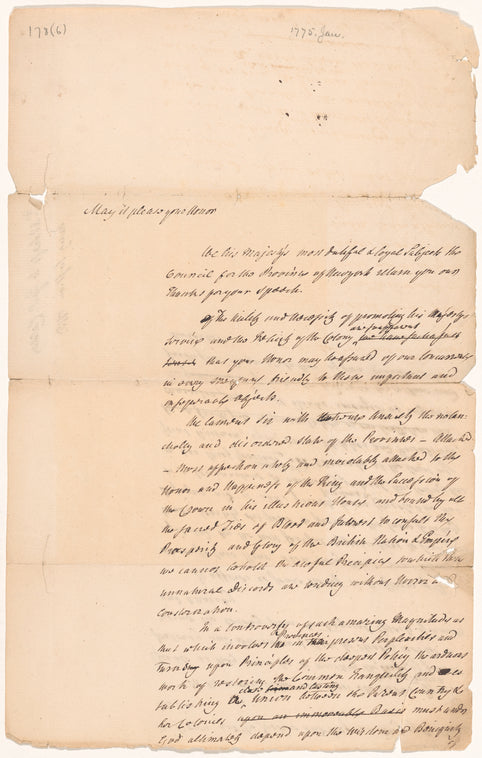 178(6)
1775. Jan.
May it please your Honor
We his Majesty's most dutiful & loyal Subjects the
Council for the Province of New york return you our
Thanks for your Speech.
Of the Utility and Necessity of promoting his Majestys
Service and the Felicity of the Colony
that your Honor may be assured of our Concurrence
in every measure friendly to these important and
inseperable Objects.
We lament Sir with Anxiety the melan
cholly and disordered State of the Provinces – Attached
– Most affectionately and inviolably attached to the
Honor and Happiness of the King and the Succession of
the Crown in his illustrious House, and bound by all
the sacred Ties of Blood and Interest to consult the
Prosperity and Glory of the British Nation & Empire
we cannot behold the awful Precipice to which these
unnatural Discords are tending without Horror &
Consternation.
In a Controversy of such amazing Magnitude as
that which involves the Provinces in present Perplexities and
Turning upon Principles of the deepest Policy the arduous
work of restoring the Common Tranquility and es
tablishing the close firm and lasting Union between the Parent Country &
her Colonies upon an immoveable Basis must under
God ultimately depend upon the Wisdom and Benignity
of